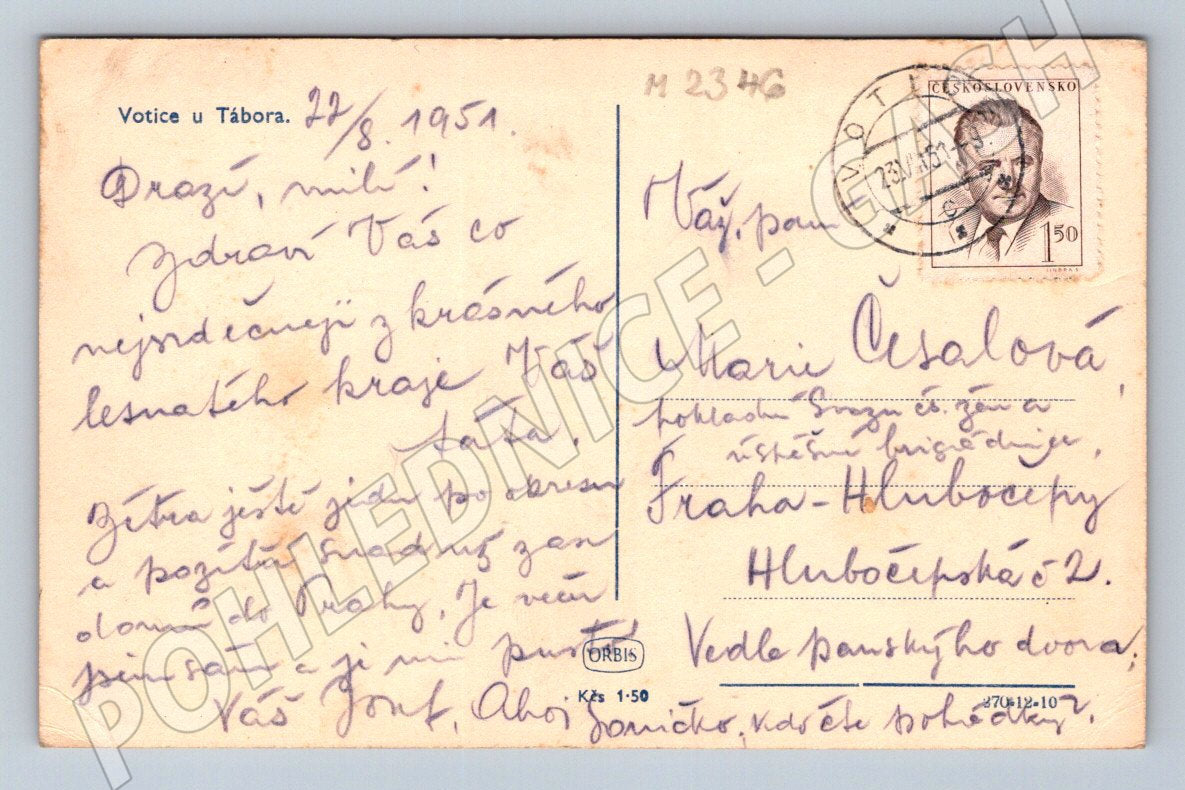 M 2346
Votice u Tábora. 22/8. 1951.
Drazí, milí!
Zdraví Vás co
nejsrdečněji z krásného
lesnatého kraje Váš
táta.
Zítra ještě jedu po okresu
a pozítří snad už zase
domů do Prahy. Je večer
jsem sám a je mi pusto.
Váš Josef. Ahoj
Janičko, kdo čte pohádky?
VOTICE
23.VIII.51-9
ČESKOSLOVENSKO
1.50
Váž. paní
Marie Česalová,
pokladní Svazu čs. žen a
úderná brigádnice,
Praha-Hlubočepy
Hlubočepská č 2.
Vedle panského dvora.
ORBIS
Kčs 1·50
270-12-10
POHLEDNICE - GLASH